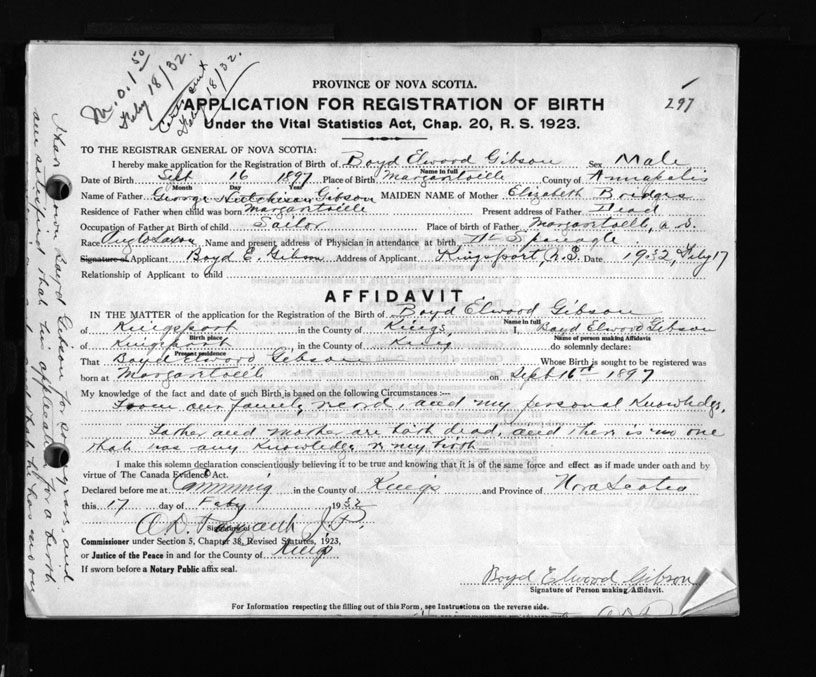 M.O. 1.50
Feby 18/32.
Feby 18/32.
297
PROVINCE OF NOVA SCOTIA.
APPLICATION FOR REGISTRATION OF BIRTH
Under the Vital Statistics Act, Chap. 20, R. S. 1923.
TO THE REGISTRAR GENERAL OF NOVA SCOTIA:
I hereby make application for the Registration of Birth of Boyd Elwood Gibson Sex Male
Name in full
Date of Birth Sept 16 1897 Place of Birth Margaretville County of Annapolis
Month Day Year
Name of Father George Hutchison Gibson MAIDEN NAME of Mother Elizabeth
Residence of Father when child was born Margaretville Present address of Father Dead
Occupation of Father at Birth of child Sailor Place of birth of Father Margaretville, N.S.
Race Anglo Saxon Name and present address of Physician in attendance at birth
Signature of Applicant Boyd E. Gibson Address of Applicant Kingsport, N.S. Date 1932, Feby 17
Relationship of Applicant to child
AFFIDAVIT
IN THE MATTER of the application for the Registration of Birth of Boyd Elwood Gibson
Name in full
of Kingsport in the County of Kings, I, Boyd Elwood Gibson
Birth place Name of person making Affidavit
of Kingsport in the County of Kings do solemnly declare:
Present residence
That Boyd Elwood Gibson Whose Birth is sought to be registered was
born at Margaretville on Sept 16th 1897
My knowledge of the fact and date of such Birth is based on the following Circumstances :—
From our family record, and my personal Knowledge,
Father and mother are both dead, and there is no one
that has any Knowledge of my birth
I make this solemn declaration conscientiously believing it to be true and knowing that it is of the same force and effect as if made under oath and by
virtue of The Canada Evidence Act.
Declared before me at Canning in the County of Kings and Province of Nova Scotia
this 17 day of Feby 1932
J.P.
Commissioner under Section 5, Chapter 38, Revised Statutes, 1923,
or Justice of the Peace in and for the County of Kings
If sworn before a Notary Public affix seal.
Boyd Elwood Gibson
Signature of Person making Affidavit.
For Information respecting the filling out of this Form, see Instructions on the reverse side.
Boyd Gibson for years, and
am satisfied that this applicant for a birth